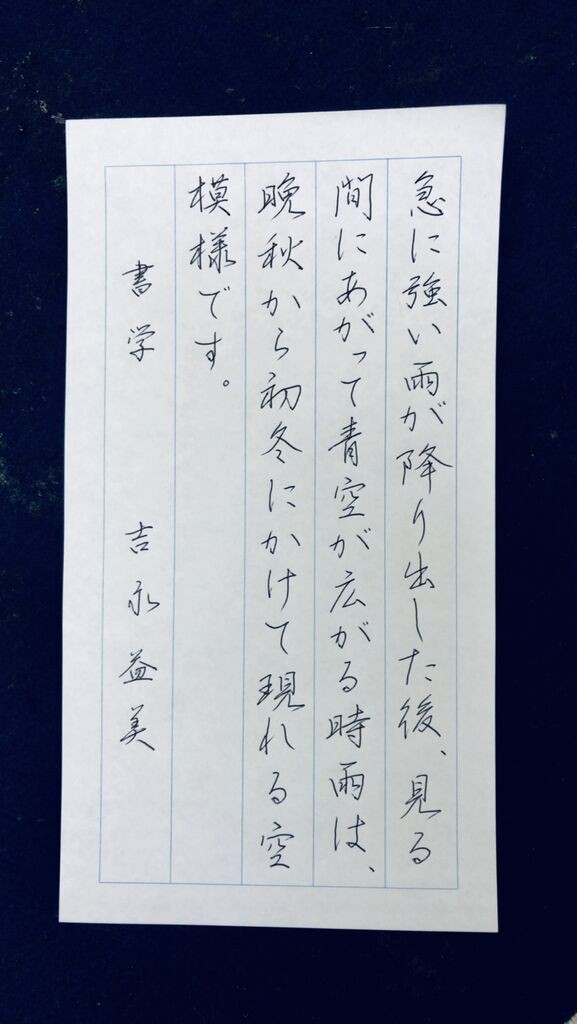 急に強い雨が降り出した後、見る
間にあがって青空が広がる時雨は、
晩秋から初冬にかけて現れる空
模様です。
書学 吉永益美